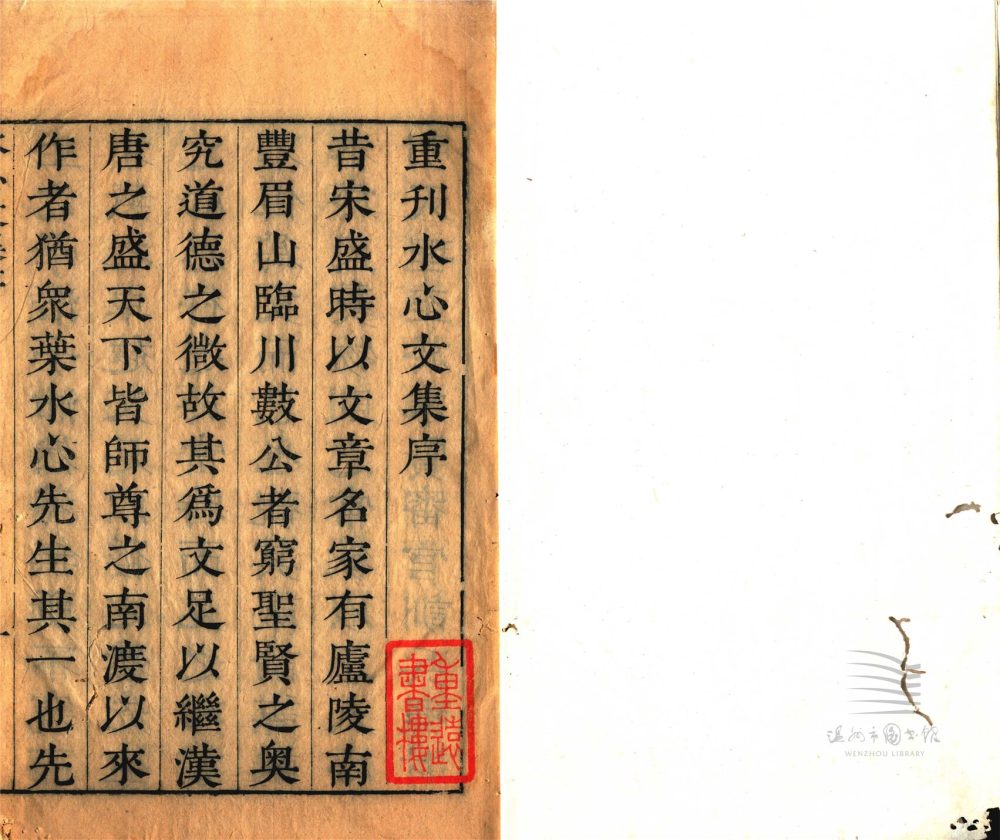 重刊水心文集序
昔宋盛時以文章名家有廬陵南
豐眉山臨川數公者窮聖賢之奥
究道德之微故其爲文足以繼漢
唐之盛天下皆師尊之南渡以來
作者猶衆葉水心先生其一也先
温州市图书馆
WENZHOU LIBRARY